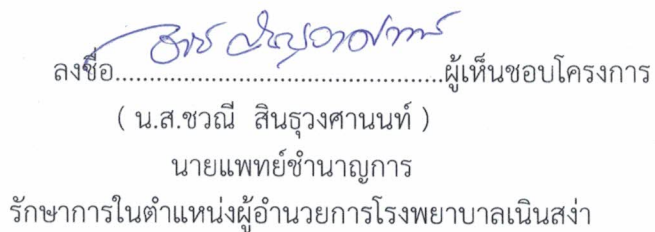 ลงชื่อ................................................ผู้เห็นชอบโครงการ
( น.ส.ชวณี สินธุวงศานนท์ )
นายแพทย์ชำนาญการ
รักษาการในตำแหน่งผู้อำนวยการโรงพยาบาลเนินสง่า